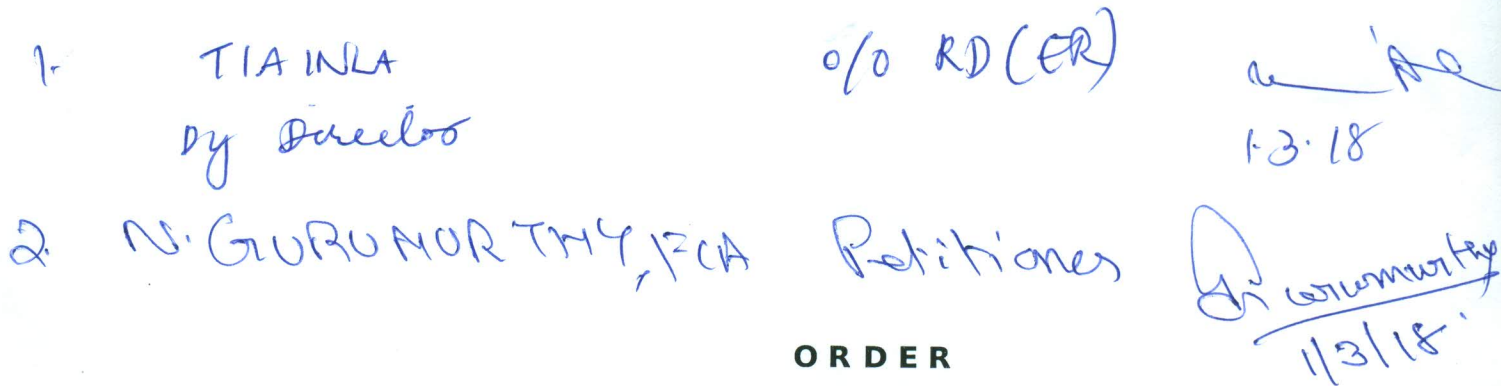 1. TIAINLA o/o RD (ER)
Dy Director 1.3.18
2. N. GURUMURTHY, FCA Petitioner Gurumurthy
1/3/18
ORDER